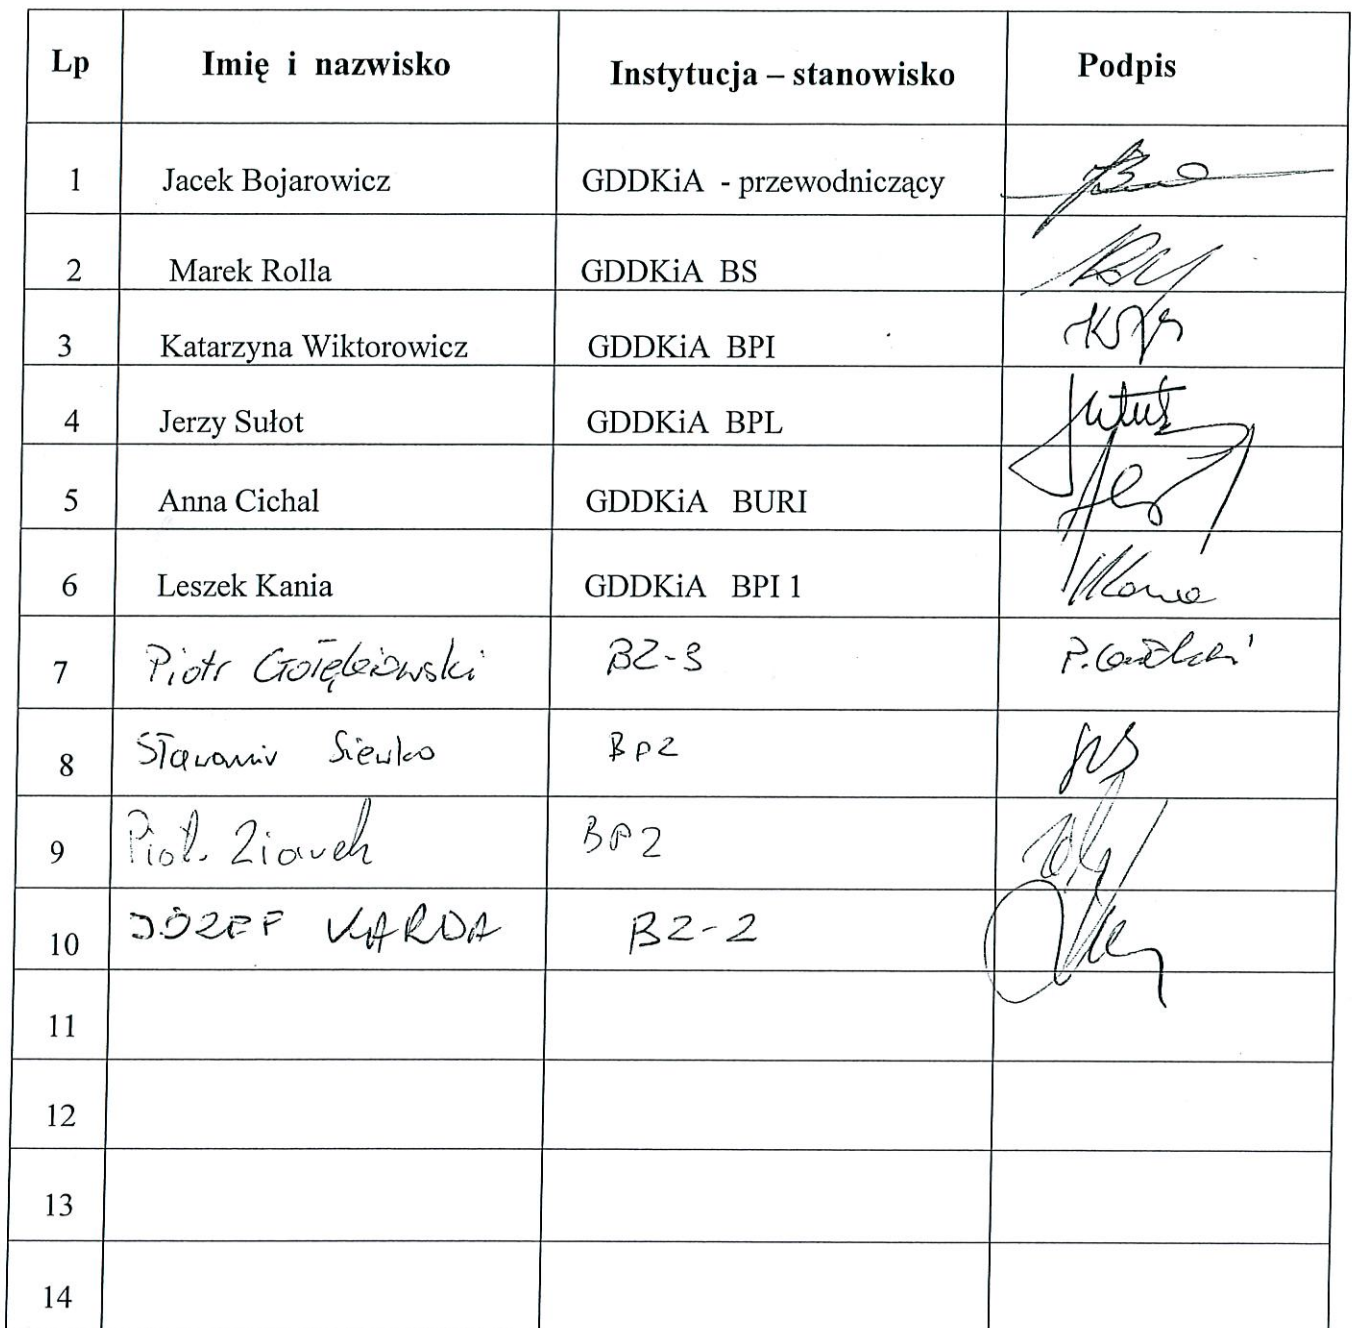 Lp Imię i nazwisko Instytucja – stanowisko Podpis
1 Jacek Bojarowicz GDDKiA - przewodniczący
2 Marek Rolla GDDKiA BS
3 Katarzyna Wiktorowicz GDDKiA BPI
4 Jerzy Sułot GDDKiA BPL
5 Anna Cichal GDDKiA BURI
6 Leszek Kania GDDKiA BPI 1
7 Piotr BZ-3
8 Sławomir Sieńko BPZ
9 Piotr BPZ
10 JÓZEF KARDA BZ-2
11
12
13
14